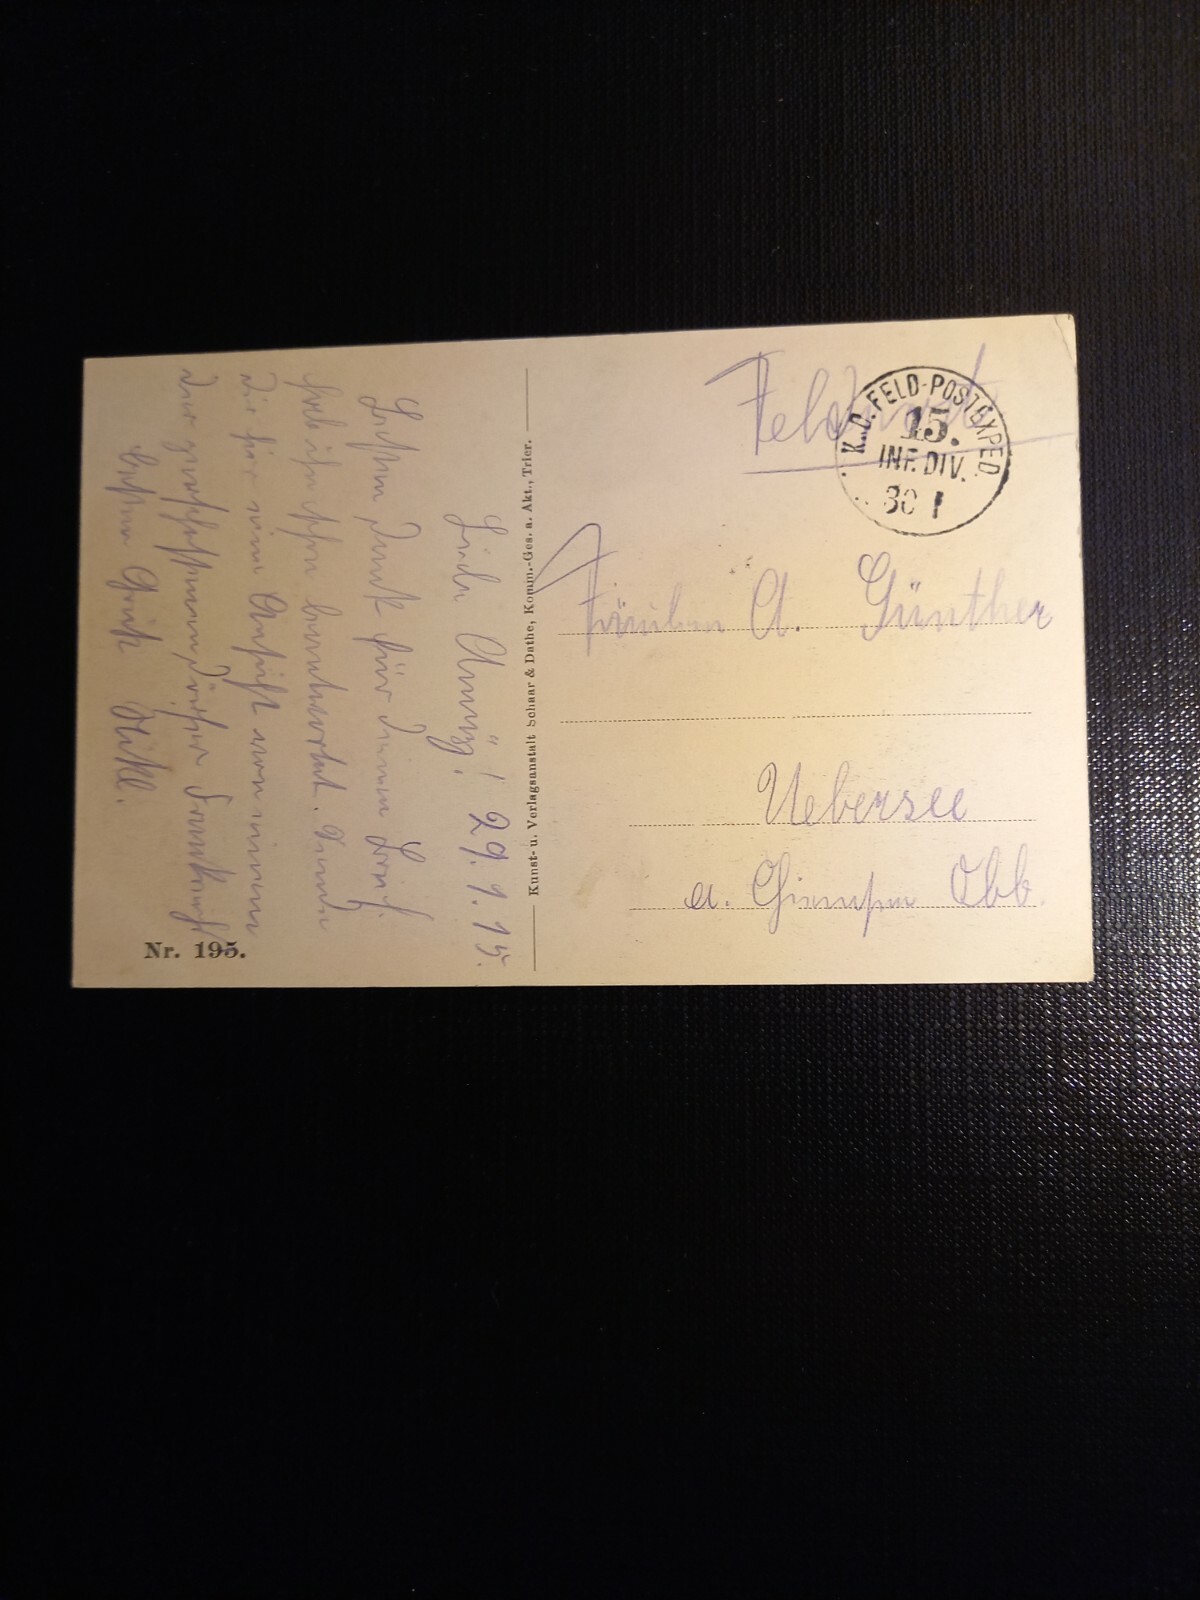 Feldpost
K. D. FELD-POSTEXPED.
15.
INF. DIV.
30 1
Fräulein A. Günther
Uebersee
a. Chiemsee Obb.
Kunst- u. Verlagsanstalt Schaar & Dathe, Komm.-Ges. a. Akt., Trier.
Liebe Anny! 29.1.15.
Besten Dank für Deinen Brief.
Hab ihn schon beantwortet. Sende
Dir hier eine Ansicht von einem
der zerschossenen Dörfer Frankreichs
Besten Gruß
Nr. 195.